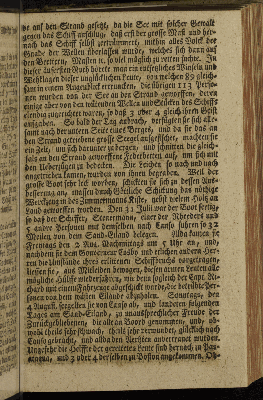 ne auf den Strand gesetzt, da die See mit solcher Gewalt
gegen das Schiff anschlug, daß erst der grosse Mast und her-
nach das Schiff selbst zertrümmert, mithin alles Volk der
Gnade der Wellen überlassen wurde, welches sich dann auf
den Brettern, Masten rc. so viel möglich zu retten suchte. In
dieser äussersten Noth hörete man ein entsetzliches Winseln und
Wehklagen dieser unglücklichen Leute, von welchen 89 gleich-
sam in einem Augenblick ertruncken, die übrigen 113 Perso-
nen wurden von der See an den Strand geworffen, deren
einige aber von den tobenden Wellen und Stücken des Schiffs
elendig zugerichtet waren, so daß 3 oder 4 gleich ihren Geist
aufgaben. So bald der Tag anbrach, verfügten sie sich alle-
samt nach der andern Seite eines Berges, und da sie das an
den Strand getriebene grosse Seegel aufgefischet, machten sie
ein Zelt, um sich darunter zu bergen, und schnitten die gleich-
fals an den Strand geworffene Federbetten auf, um sich mit
den Ueberzügen zu bedecken. Die Leichen, so nach und nach
angetrieben kamen, wurden von ihnen begraben. Weil der
grosse Boot hier leck worden, schickten sie sich zu dessen Aus-
besserung an, wozu durch Göttliche Schickung das nöthige
Werckzeug in des Zimmermanns Kiste, nebst vielem Holtz an
Land geworffen worden. Den 31 Julii war der Boot fertig
so daß der Schiffer, Steuermann, einer der Rheeders und
7 andre Personen mit demselben nach Canso fuhren so 32
Meilen von dem Sand-Eiland belegen. Alda kamen sie
Freytags den 2 Aug. Nachmittags um 5 Uhr an, und,
nachdem sie dem Gouverneur Cosby und etlichen andern Her-
ren die Umstände ihres erlittenen Schiffbruchs vorgetragen,
liessen sie, aus Mitleiden bewogen, diesen armen Leuten alle
mögliche Hülffe wiederfahren, wie denn sogleich der Capt. Ri-
chard mit einem Fahrzeuge abgeschickt wurde, die betrübte Per-
sonen von dem wüsten Eilande abzuholen. Sonntags, den
4 August, segelten sie von Canso ab, und landeten folgenden
Tages am Sand-Eiland, zu unaussprechlicher Freude der
Zurückgebliebenen, die alle an Boord genommen, und, ob-
wohl theils sehr schwach, theils sehr verwundet, glücklich nach
Canso gebracht, und allda den Aerzten anvertrauet wurden.
Ungefehr die Helffte der geretteten Leute sind hernach zu Pas-
und 3 oder 4 derselben zu Boston angekommen.